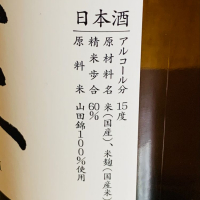 日本酒
アルコール分 15度
原材料名 米(国産)、米麹(国産米)
精米歩合 60%
原料米 山田錦100%使用